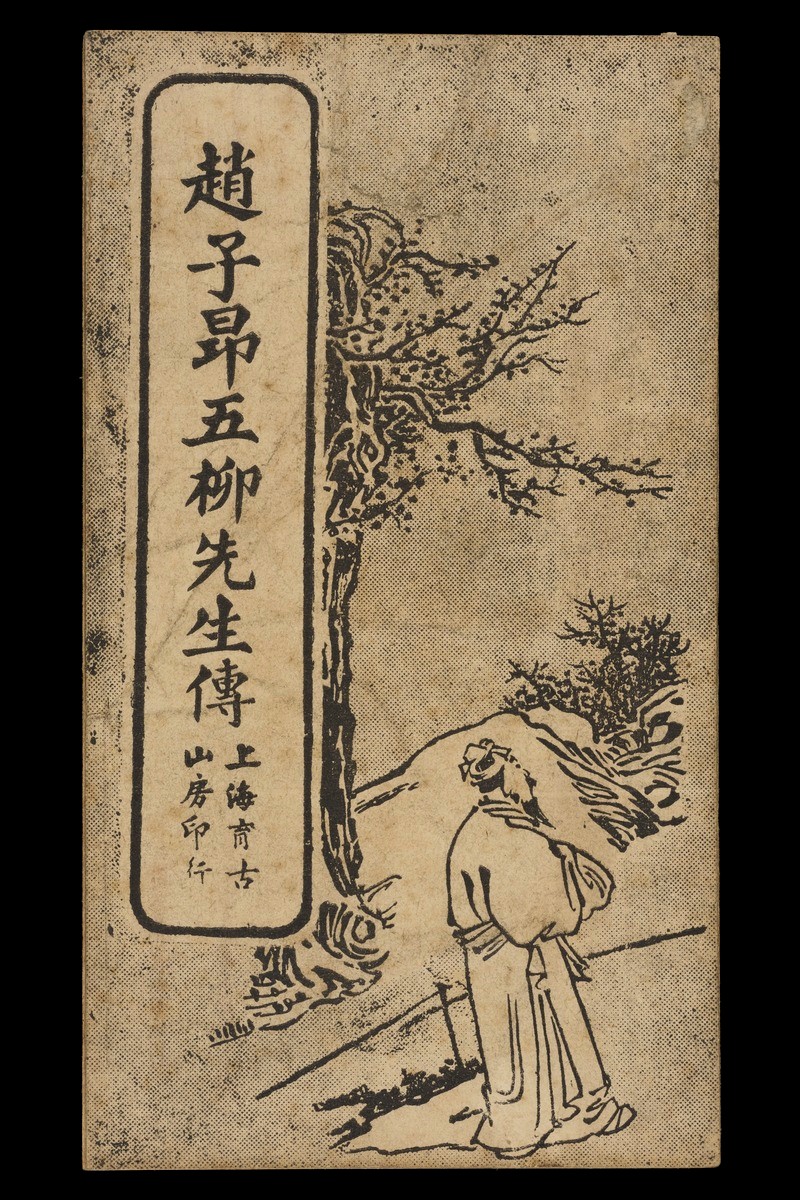 趙子昂五柳先生傳
上海育古
山房印行